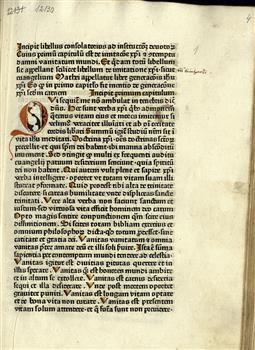 Incipit libellus consolatorius ad instructionem deuotorum
Cuius primum capitulum est de imitatione xpi et contemptu
omnium vanitatum mundi. Et quidam totum libellum
sic appellant scilicet libellum de imitatione xpi sicut
euangelium Mathei appellatur liber generationis ihu
xpi Eo quod in primo capitulo fit mentio de generatione
xpi secundum carnem Incipit primum capitulum
QUi sequitur me non ambulat in tenebris dicit
dominus. Hec sunt verba xpi quibus admonemur
quatenus vitam eius et mores imitemur si
velimus veraciter illuminari et ab omni cecitate
cordis liberari Summum igitur studium nostrum sit in
vita ihu meditari Doctrina xpi omnes doctrinas sanctorum
precellit et qui spiritum dei haberet ibi manna absconditum
inueniret Sed contingit quod multi ex frequenti auditu
euangelij paruum desiderium sentiunt quia spiritum
dei non habent. Qui autem vult plene et sapide xpi
verba intelligere oportet ut totam vitam suam illi
studeat conformare. Quid prodest tibi alta de trinitate
disputare si careas humilitate vnde displiceas sancte
trinitati. Vere alta verba non faciunt sanctum et
iustum sed virtuosa vita efficit hominem deo carum
Opto magis sentire compunctionem quam scire eius
diffinitionem. Si scires totam bibliam exterius et
omnium philosophorum dicta quid totum prodesset sine
caritate et gratia dei. Vanitas vanitatum et omnia
vanitas preter amare deum et illi soli seruire. Ista est summa
sapientia per contemptum mundi tendere ad celestia
Vanitas igitur est diuitias perituras querere et in
illis sperare. Vanitas quoque est honores mundi ambire
et in altum se extollere. Vanitas est carnis desideria
sequi et illa desiderare. Vnde post modum oportet
grauiter puniri. Vanitas est longam vitam optare
et de bona vita non curare. Vanitas est presentem
vitam solum attendere et que futura sunt non preuidere